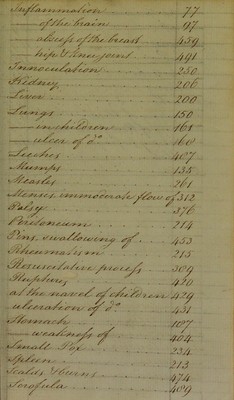 Inflammation 77
of the brain 47
abscess of the breast 439
hip & knee joint 491
Innoculation 250
Kidney 206
Liver 200
Lungs 150
in children 161
ulcer of do 160
Leeches 407
Mumps 135
Measles 261
Menses immoderate flow of 312
Palsy 376
Peritoneum 214
Pins, swallowing of 453
Rheumatism 215
Resuscitative process 309
Ruptures 430
at the navel of children 429
ulceration of do 431
Stomach 107
weakness of 404
Small Pox 234
Spleen 213
Scalds & burns 474
Scrofula 409